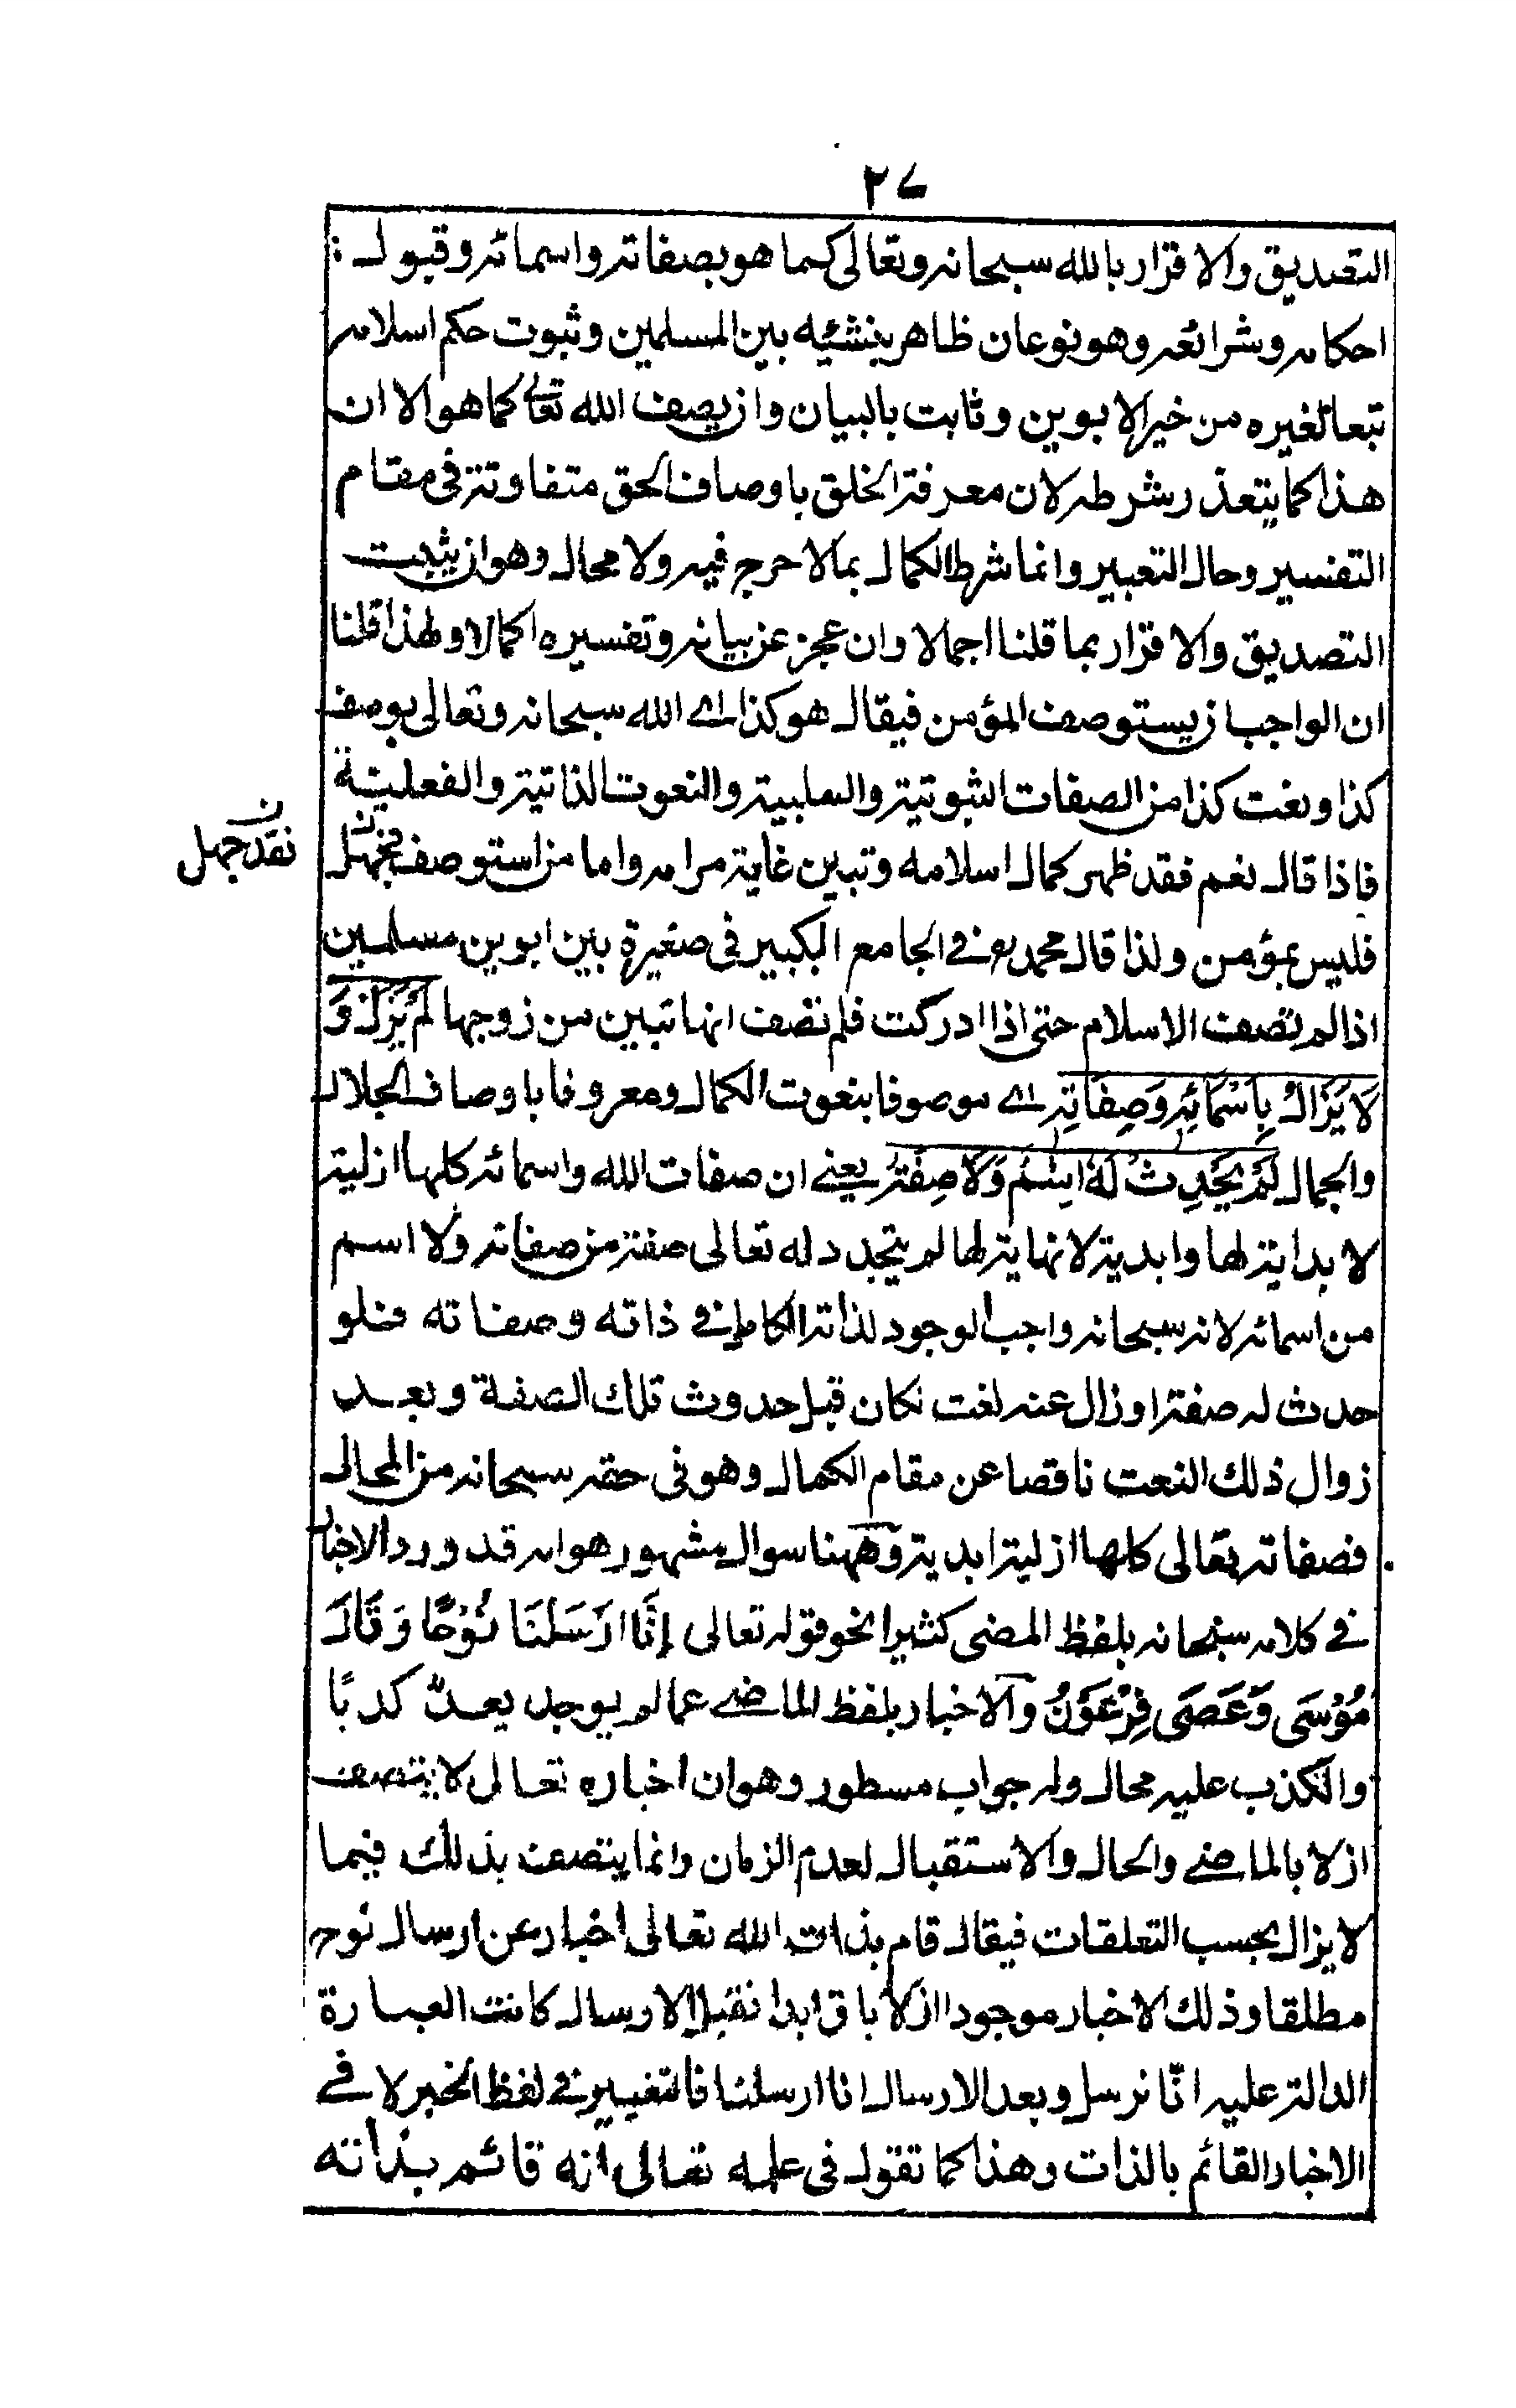 ٢٧
التصديق والاقرار بالله سبحانه وتعالى كما هو بصفاته واسمائه وقبول :
احكامه وشرائعه وهو نوعان ظاهر ينشئه بين المسلمين وثبوت حكم اسلامه
تبعا لغيره من خير الابوين وثابت بالبيان وان يصف الله تعالى كما هو الا ان
هذا كما يتعذر شرطه لان معرفة الخلق باوصاف الحق متفاوتة في مقام
التفسير وحال التعبير وانما شرط الكمال بما لا حرج فيه ولا محال وهو ان يثبت
التصديق والاقرار بما قلنا اجمالا وان عجز عن بيانه وتفسيره اكمالا ولهذا قلنا
ان الواجب ان يستوصف المؤمن فيقال هو كذا اے الله سبحانه وتعالى يوصف
كذا ونعت كذا من الصفات الثبوتية والسلبية والنعوت الذاتية والفعلية
فاذا قال نعم فقد ظهر كمال اسلامه وتبين غاية مرامه واما من استوصف فجهل
ن
نقد جهل
فليس بمؤمن ولذا قال محمد رح في الجامع الكبير في صغيرة بين ابوين مسلمين
اذا لم تصف الاسلام حتى اذا ادركت فلم تصف انها تبين من زوجها لَمْ يَزَلْ وَ
لَا يَزَالُ بِاَسْمَائِهٖ وَصِفَاتِهٖ اے موصوفا بنعوت الكمال ومعروفا باوصاف الجلال
والجمال لَمْ يَحْدِثْ لَهٗ اِسْمٌ وَلَا صِفَةٌ يعنے ان صفات الله واسمائه كلها ازلية
لا بداية لها وابدية لا نهاية لها لم يتجدد له تعالى صفة من صفاته ولا اسم
من اسمائه لانه سبحانه واجب الوجود لذاته الكامل في ذاته وصفاته فلو
حدث له صفة او زال عنه نعت لكان قبل حدوث تلك الصفة وبعد
زوال ذلك النعت ناقصا عن مقام الكمال وهو في حقه سبحانه من المحال
فصفاته تعالى كلها ازلية ابدية وههنا سوال مشهور هو انه قد ورد الاخبار
في كلامه سبحانه بلفظ المضى كثيرا نحو قوله تعالى اِنَّا اَرْسَلْنَا نُوْحًا وَقَالَ
مُوْسَى وَعَصَى فِرْعَوْنُ والاخبار بلفظ الماضے عما لم يوجد يعدّ كذبًا
والكذب عليه محال وله جواب مسطور وهو ان اخباره تعالى لا يتصف
ازلا بالماضے والحال والاستقبال لعدم الزمان وانما يتصف بذلك فيما
لا يزال بحسب التعلقات فيقال قام بذات الله تعالى اخبار عن ارسال نوح
مطلقا وذلك الاخبار موجود ازلا باق ابدا فقبل الارسال كانت العبارة
الدالة عليه انّا نرسل وبعد الارسال انا ارسلنا فالتغيير في لفظ الخبر لا في
الاخبار القائم بالذات وهذا كما تقول في علمه تعالى انه قائم بذاته